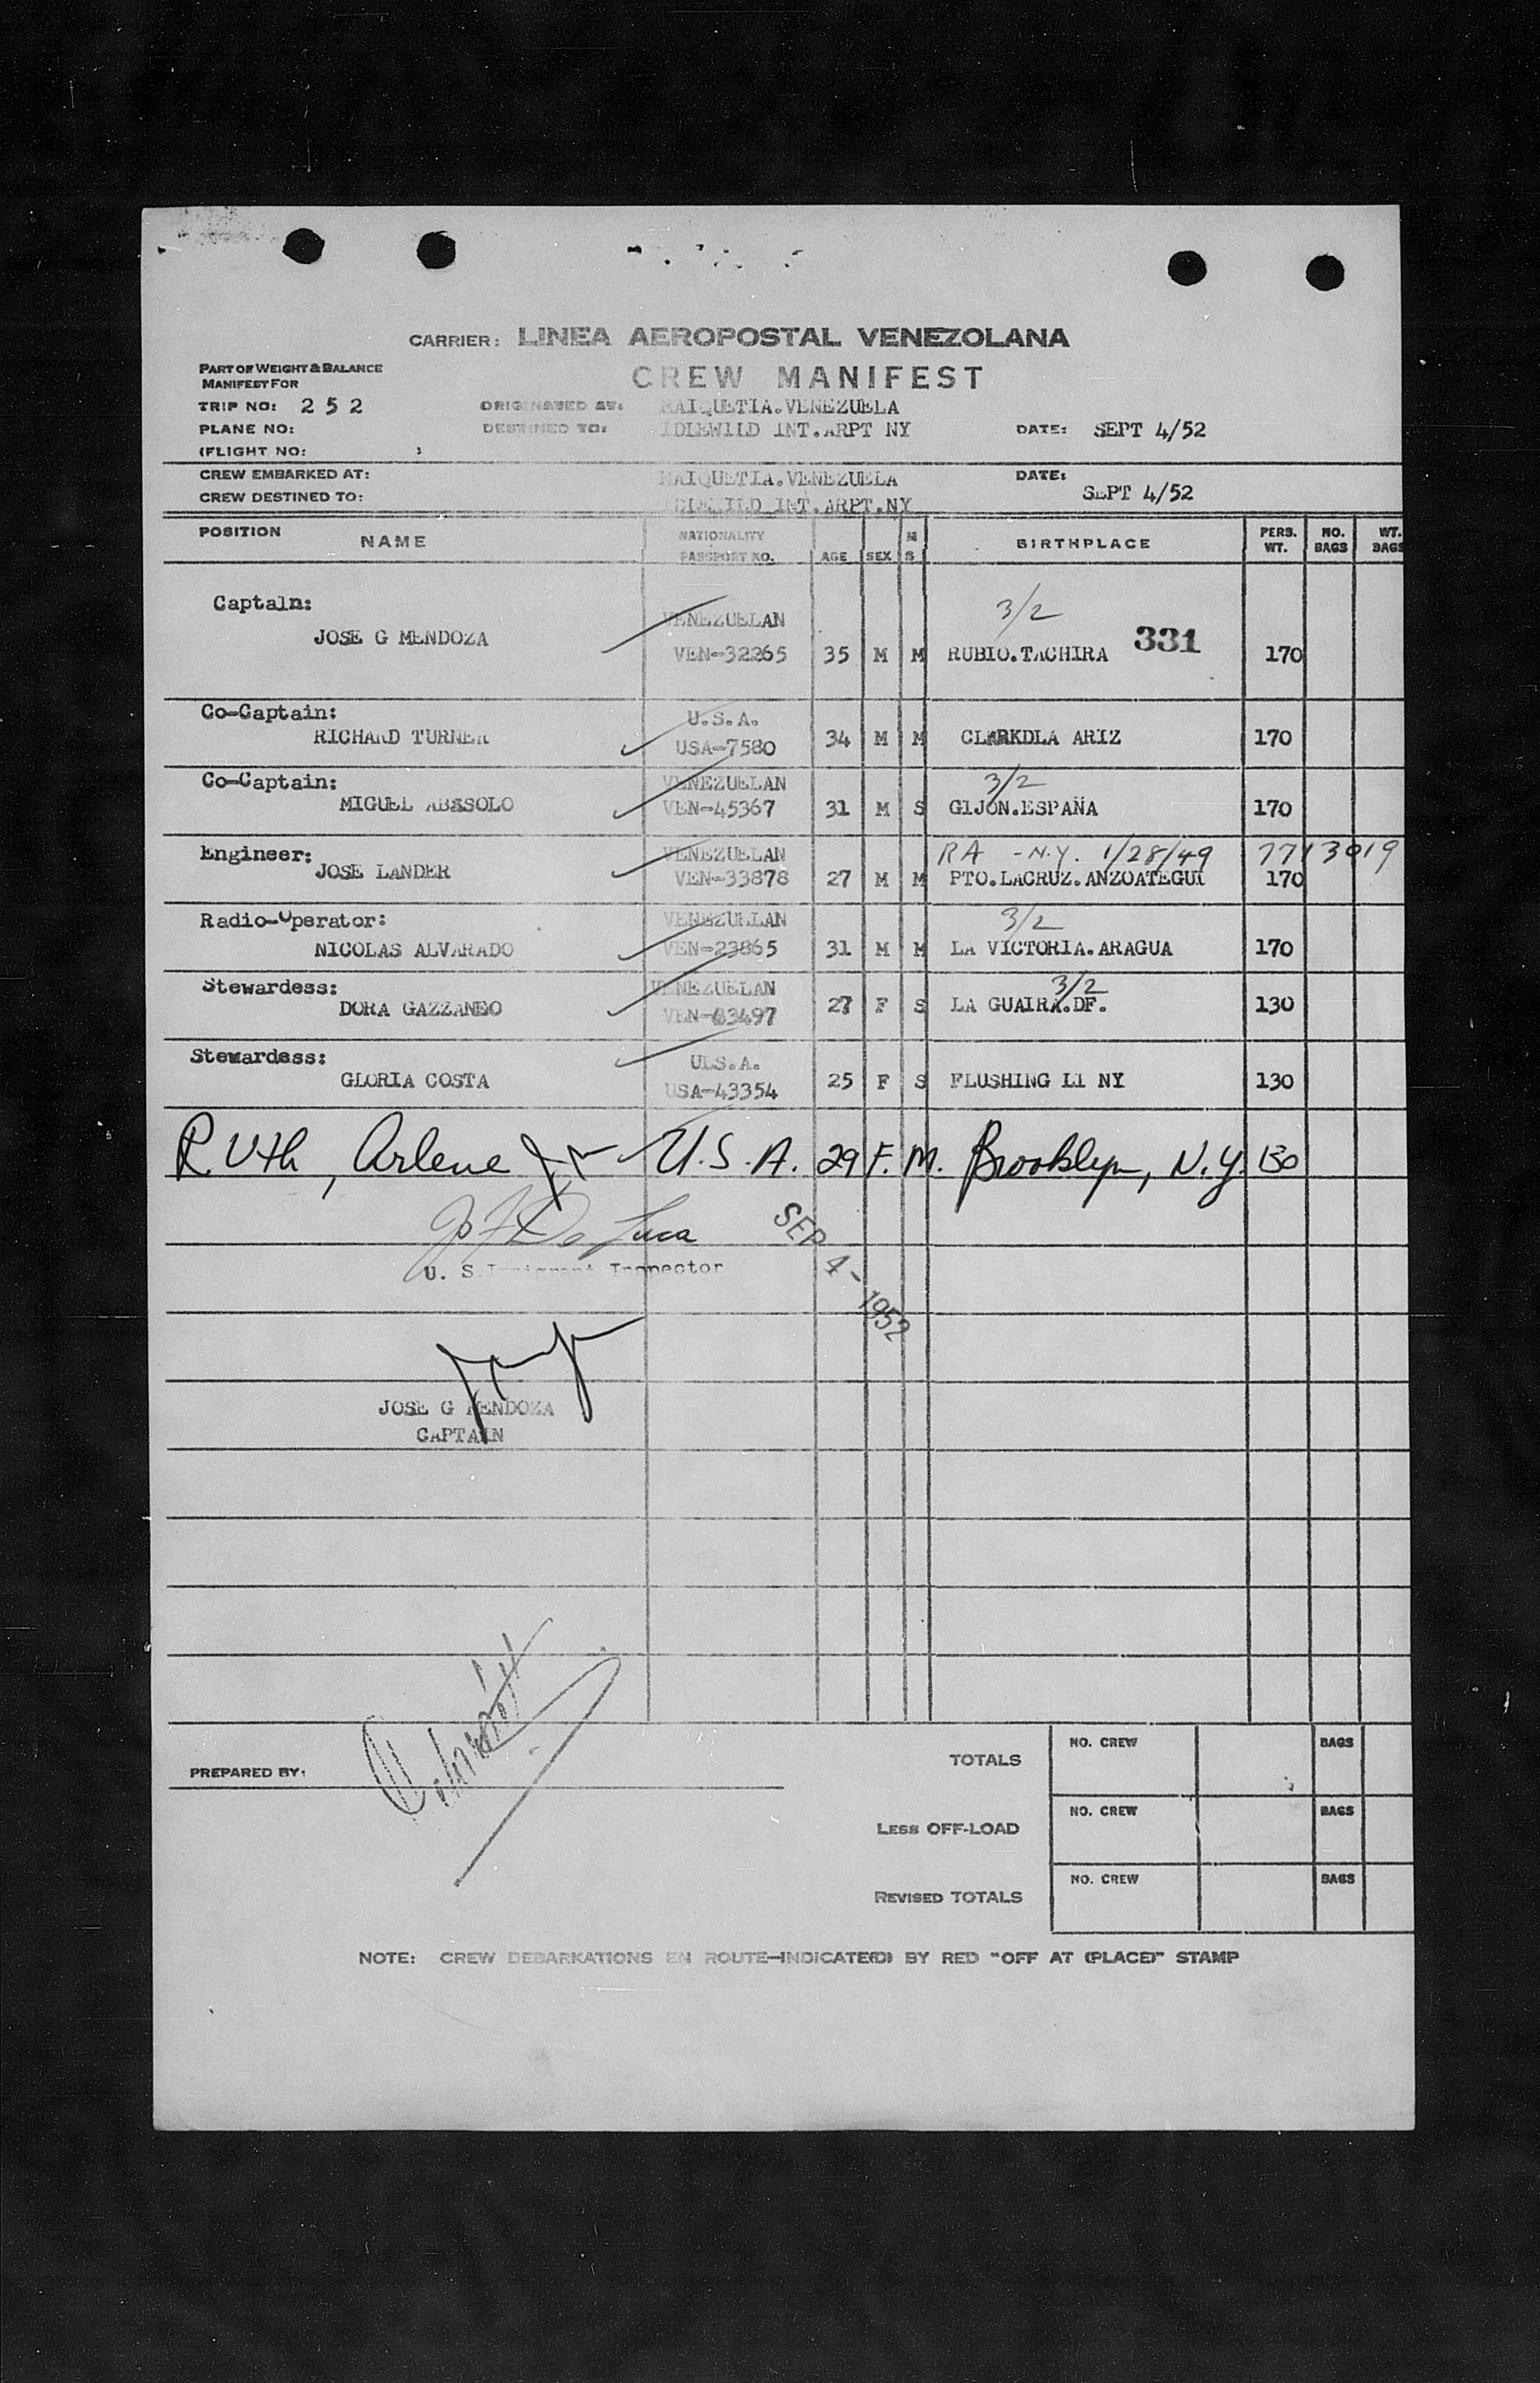 CARRIER: LINEA AEROPOSTAL VENEZOLANA
PART OF WEIGHT & BALANCE
MANIFEST FOR
CREW MANIFEST
TRIP NO: 2 5 2 ORIGINATED AT: MAIQUETIA.VENEZUELA
PLANE NO: DESTINED TO: IDLEWILD INT.ARPT NY DATE: SEPT 4/52
(FLIGHT NO: )
CREW EMBARKED AT: MAIQUETIA.VENEZUELA DATE:
CREW DESTINED TO: IDLEWILD INT.ARPT.NY SEPT 4/52
POSITION NAME NATIONALITY PASSPORT NO. AGE SEX M S BIRTHPLACE PERS. WT. NO. BAGS WT. BAGS
Captain: VENEZUELAN 3/2
JOSE G MENDOZA VEN-32265 35 M M RUBIO.TACHIRA 331 170
Co-Captain: U.S.A.
RICHARD TURNER USA-7580 34 M M CLARKDLA ARIZ 170
Co-Captain: VENEZUELAN 3/2
MIGUEL ABASOLO VEN-45367 31 M S GIJON.ESPAÑA 170
Engineer: VENEZUELAN RA - N.Y. 1/28/49 7713019
JOSE LANDER VEN-33878 27 M M PTO.LACRUZ.ANZOATEGUI 170
Radio-Operator: VENEZUELAN 3/2
NICOLAS ALVARADO VEN-23865 31 M M LA VICTORIA.ARAGUA 170
Stewardess: VENEZUELAN 3/2
DORA GAZZANEO VEN-63497 27 F S LA GUAIRA.DF. 130
Stewardess: U.S.A.
GLORIA COSTA USA-43354 25 F S FLUSHING LI NY 130
RUth, Arlene U.S.A. 29 F. M. Brooklyn, N.Y. 130
De Luca
U. S. Immigrant Inspector
SEP 4 - 1952
JOSE G MENDOZA
CAPTAIN
PREPARED BY:
TOTALS NO. CREW BAGS
LESS OFF-LOAD NO. CREW BAGS
REVISED TOTALS NO. CREW BAGS
NOTE: CREW DEBARKATIONS EN ROUTE—INDICATE(D) BY RED "OFF AT (PLACE)" STAMP